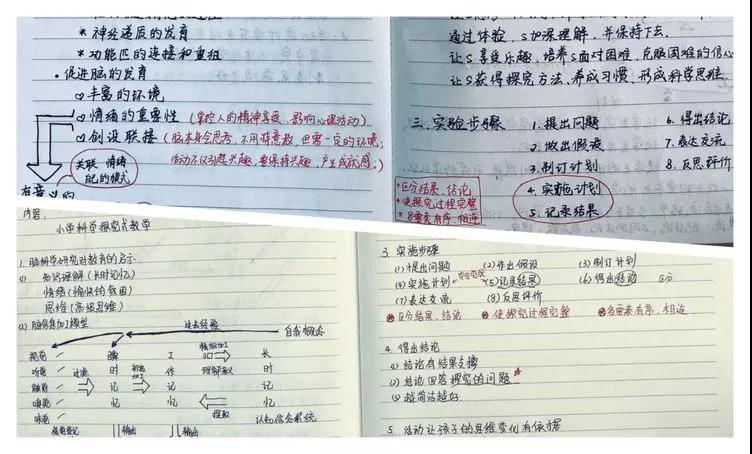 *神经递质的发育
*功能区的连接和重组
•促进脑的发育
丰富的环境
情绪的重要性(掌控人的精神享受,影响心理活动)
创设联接(脑本身会思考,不用特意教,但需一定的环境;
活动不仅引起兴趣,要保持兴趣,产生成就感。)
关联 情绪
配的模式
有意义的
通过体验,S加深理解,并保持下去.
让S享受乐趣,培养S面对困难、克服困难的信心
让S获得探究方法、养成习惯,形成科学思维.
三.实验步骤 1.提出问题 6.得出结论
2.做出假设 7.表达交流
3.制订计划 8.反思评价
4.实施计划
5.记录结果
*区分结果、结论
*使探究过程完整
*各要素有序、相连
内容:
小学科学探究式教学
1.脑科学研究对教育的启示
(1) 知识理解(长时记忆)
情绪(愉快的氛围)
思维(高级思维)
(2)脑信息加工模型
过去经验
自我概念
视觉 瞬 工 精细加工 长
听觉 过滤 时 初步加工 作 理解意义 时
触觉 记 记 记
嗅觉 忆 忆 提取 忆
味觉 认知信念系统
感觉登记 输出 输出
3.实施步骤
(1)提出问题 (2)作出假设 (3)制订计划
(4)实施计划 (5)记录结果 (6)得出结论 区分
(7)表达交流 (8)反思评价
区分结果、结论 使探究过程完整 各要素有序、相连
4.得出结论
(1)结论有结果支撑
(2)结论回答探究的问题
(3)越简洁越好
5.活动让孩子的思维变化有依据